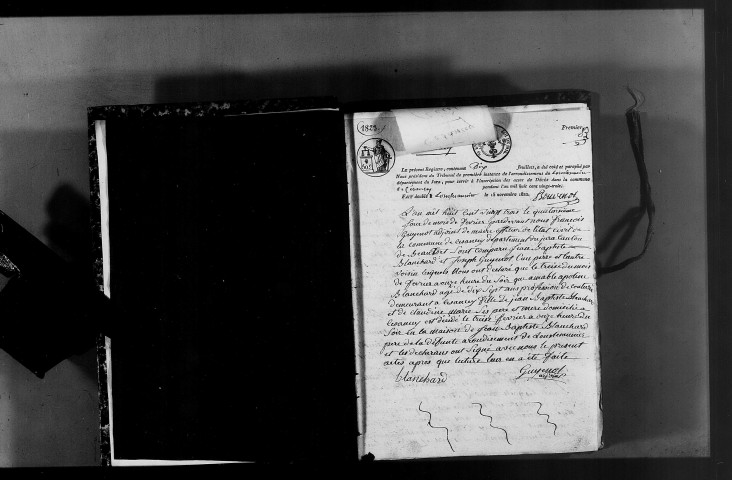 1823
Premier
Le présent Registre, contenant Dix Feuillets, a été coté et paraphé par
Nous président du Tribunal de première instance de l'arrondissement de Lonslesaunier
département du Jura, pour servir à l'inscription des actes de Décès dans la commune
de Cesancey pendant l'an mil huit cent vingt-trois.
Fait double à Lonslesaunier le 15 novembre 1822.
L'an mil huit cent vingt trois le quatorzieme
jour du mois de fevrier pardevant nous francois
Guyenot adjoint de maire officier de l'état civil de
la commune de cesancey departement du jura canton
de Beaufort sont comparu jean Baptiste
Blanchard et Joseph Guyenot l'un pere et l'autre
voisin lesquels Nous ont declaré que le treize du mois
de fevrier a onze heure du soir que amable apoline
Blanchard agé de dix sept ans profession de couturi
demeurant a cesancey fille de jean Baptiste Blanchar
et de claudine marie ses pere et mere domicilié a
cesancey est décédé le treize fevrier a onze heure du
soir en la maison de jean Baptiste Blanchard
pere de la défunte arondissement de lonslesaunier
et les declarans ont signé avec nous le present
actes apres que lecture leur en a été faite
blanchard Guyenot